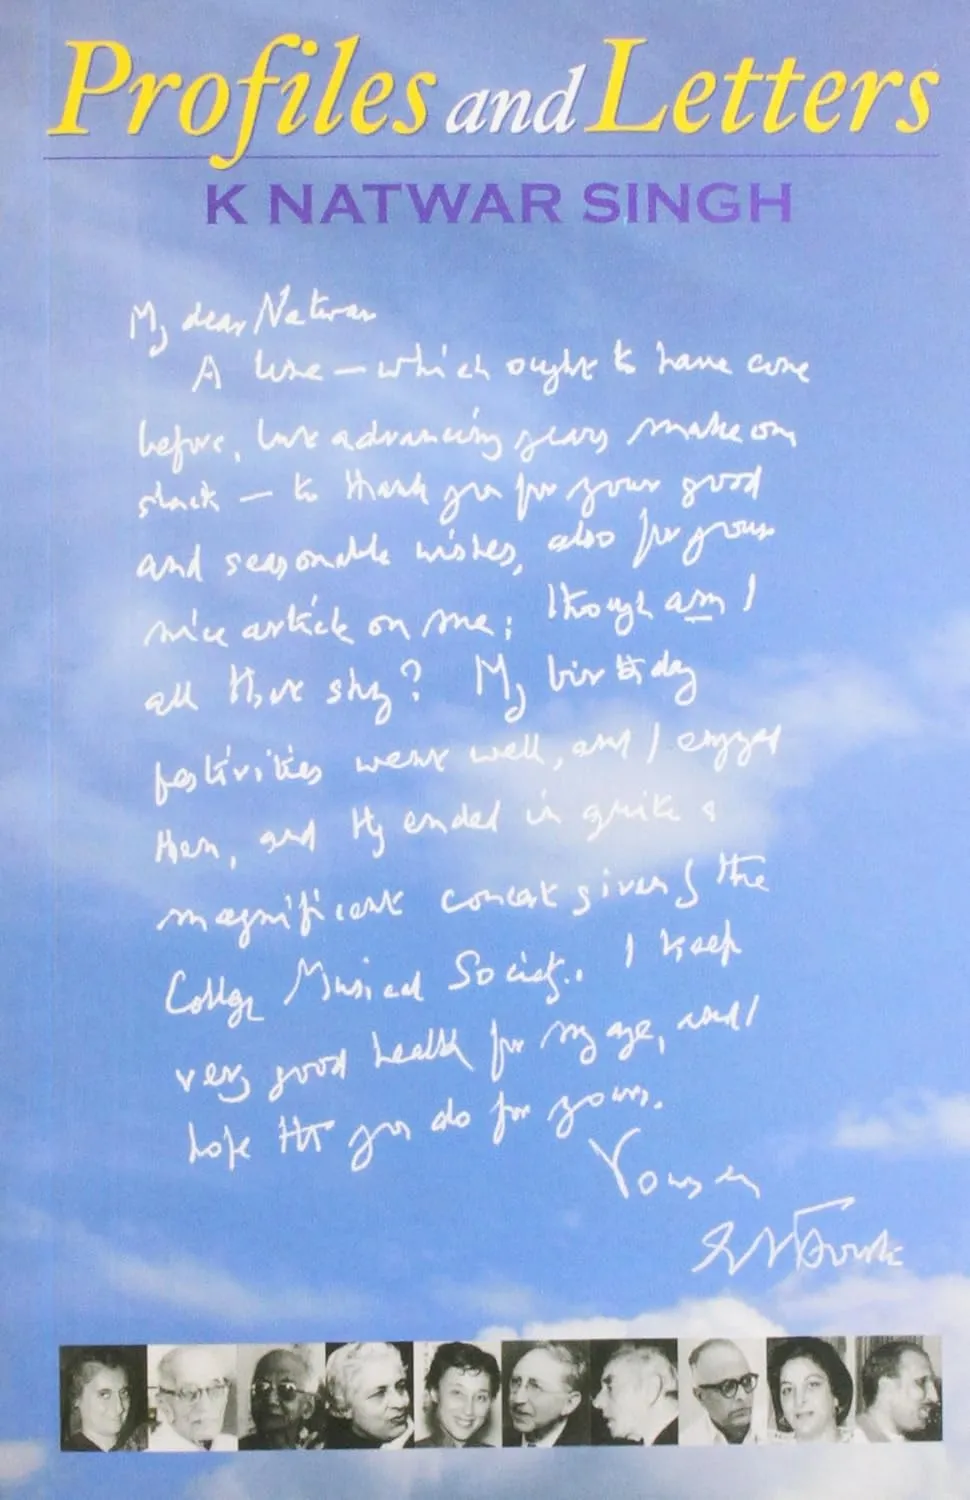 Profiles and Letters
K NATWAR SINGH
My dear Natwar
A line — which ought to have come
before, but advancing years make one
slack — to thank you for your good
and seasonable wishes, also for your
nice article on me; though am I
all that shy? My birthday
festivities went well, and I enjoyed
them, and they ended in quite a
magnificent concert given by the
College Musical Society. I keep
very good health for my age, and I
hope tht you do for yours.
Yours ever
EM Forster